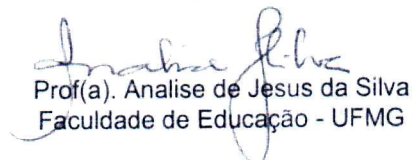 Analise Silva
Prof(a). Analise de Jesus da Silva
Faculdade de Educação - UFMG